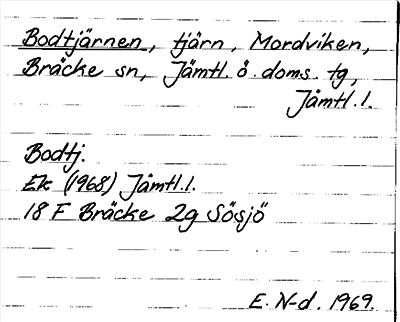 Bodtjärnen, tjärn, Mordviken,
Bräcke sn, Jämtl. ö. doms. tg,
Jämtl. l.
Bodtj.
Ek (1968) Jämtl. l.
18 F Bräcke 2g Sösjö
E. N-d. 1969.